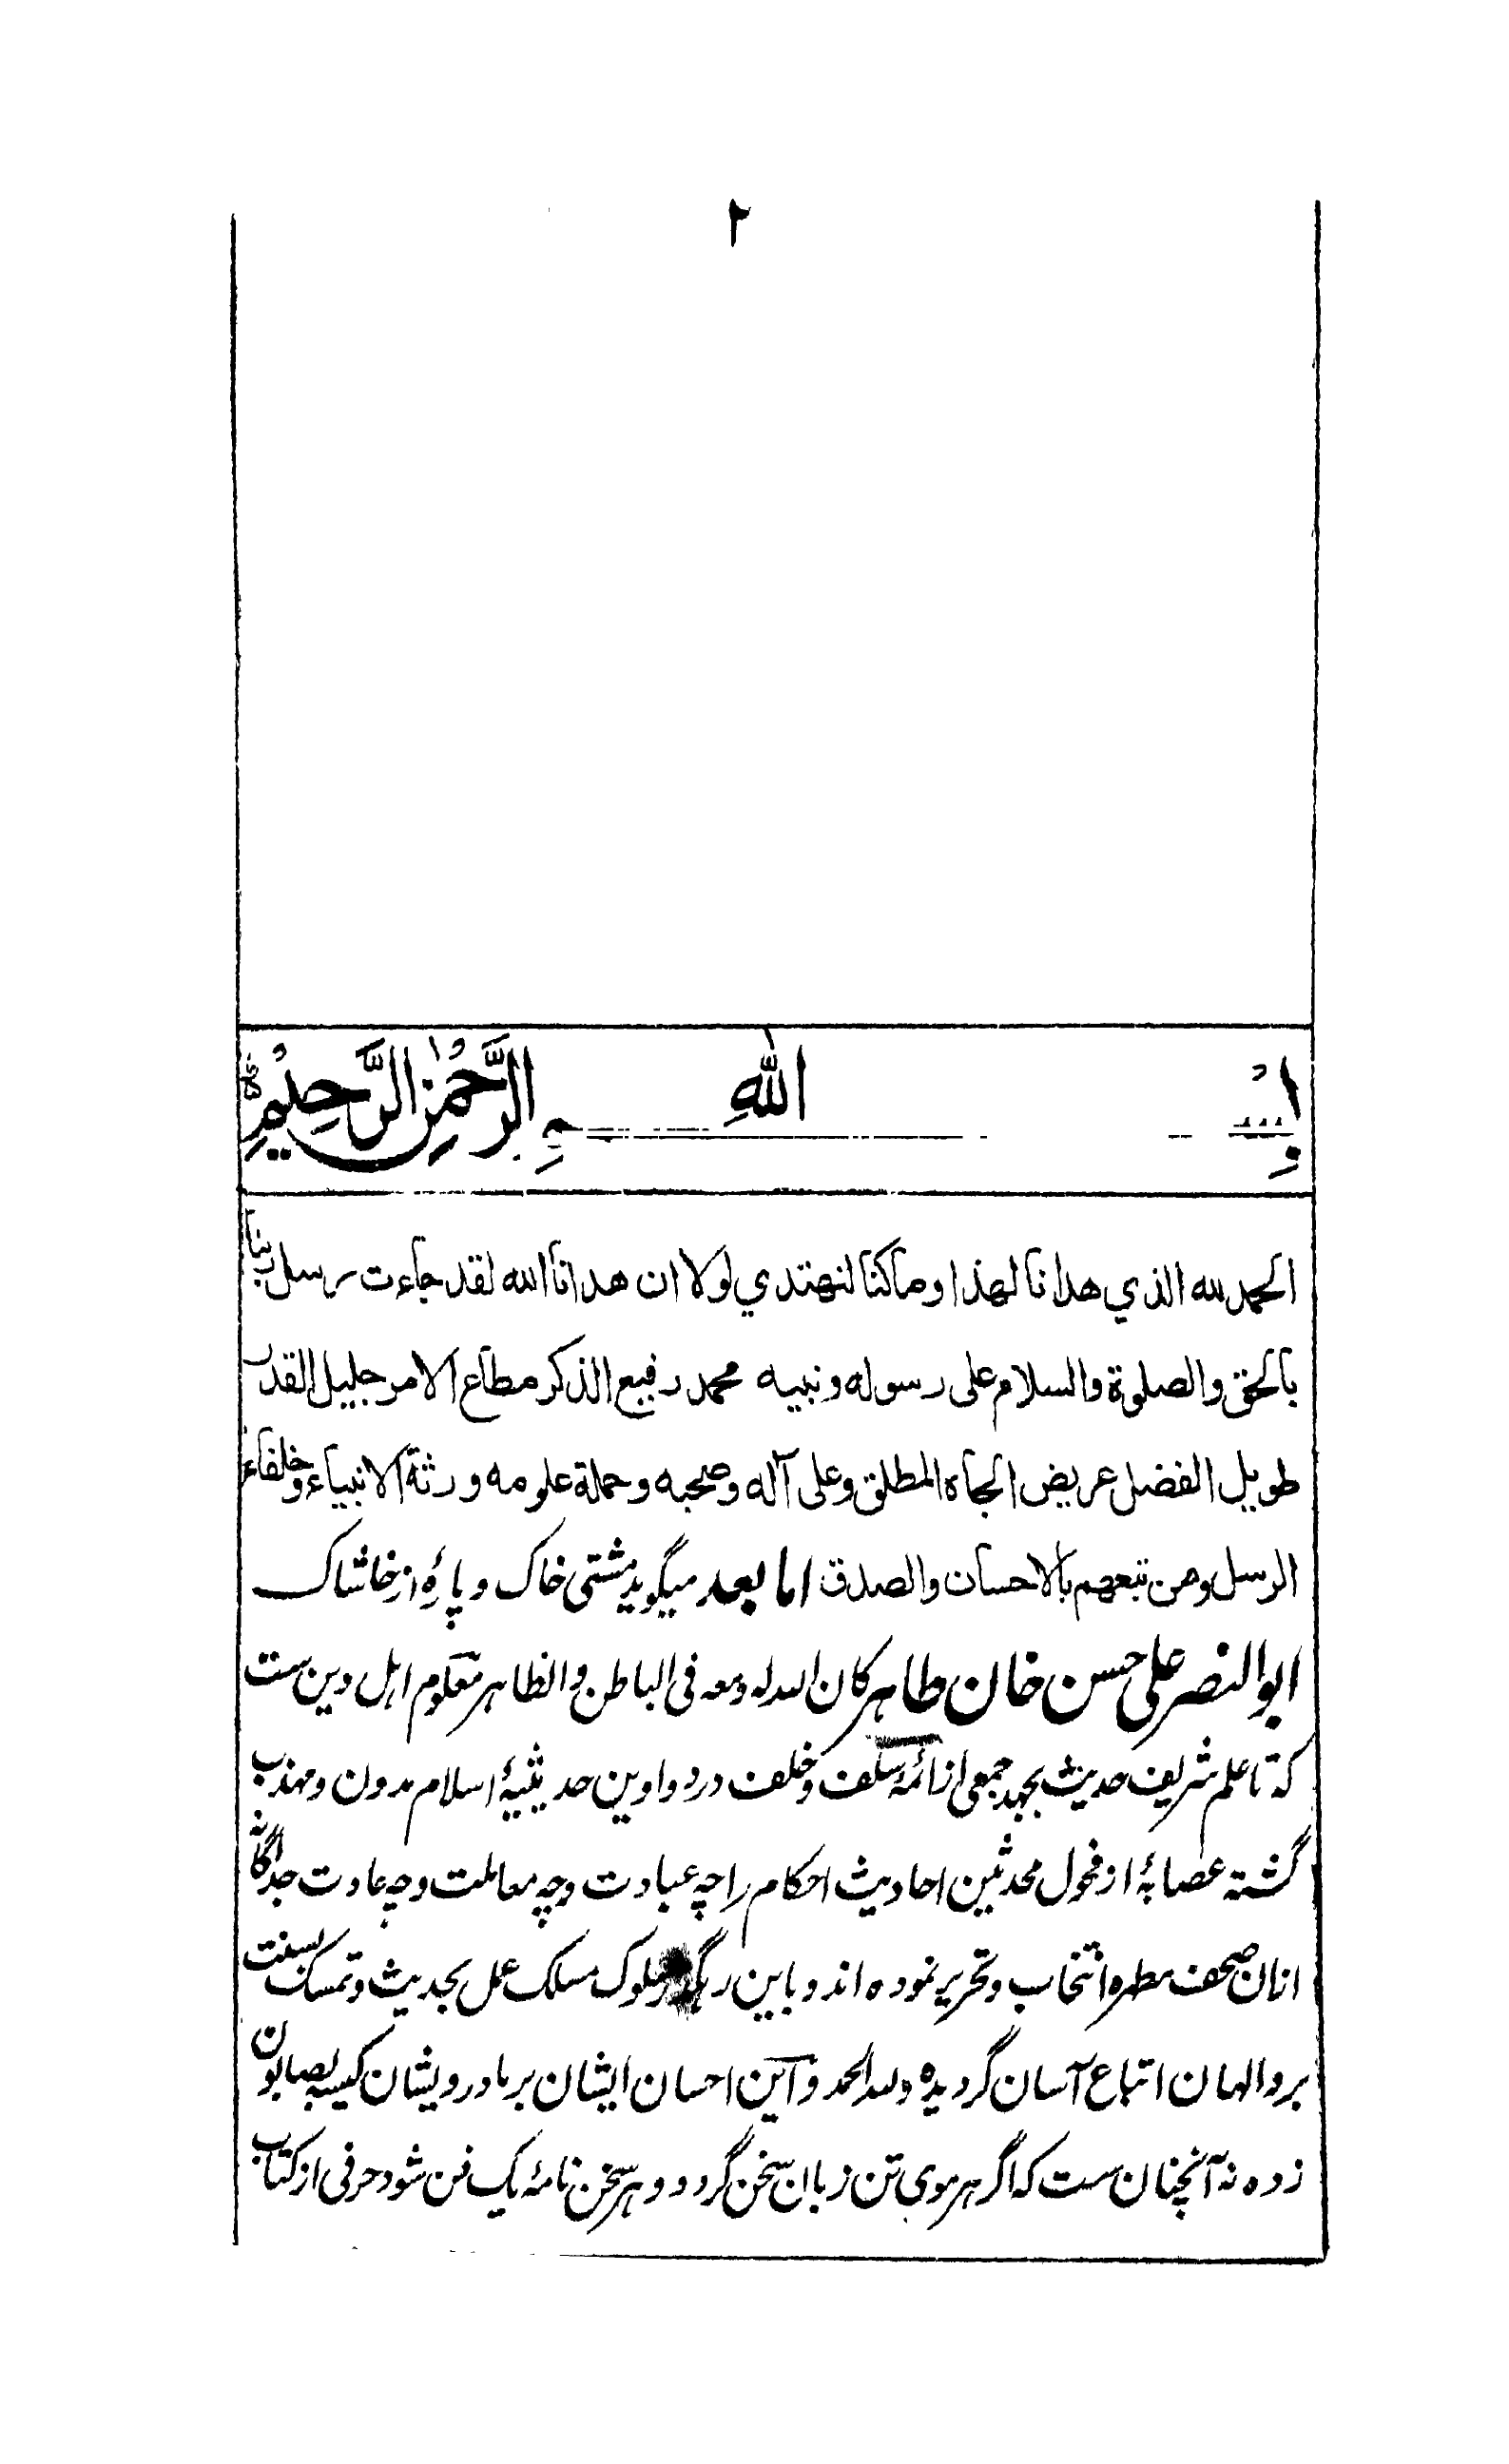 ٢
بِسْمِ اللهِ الرَّحْمٰنِ الرَّحِيْمِ
الحمد لله الذي هدانا لهذا وما كنا لنهتدي لولا ان هدانا الله لقد جاءت رسل ربنا
بالحق والصلوة والسلام على رسوله ونبيه محمد رفيع الذكر مطاع الامر جليل القدر
طويل الفضل عريض الجاه المطلق وعلى آله وصحبه وحملة علومه ورثة الانبياء وخلفاء
الرسل ومن تبعهم بالاحسان والصدق اما بعد میگوید مشتی خاک و پارهٔ از خاشاک
ابو النصر علی حسن خان طاهر کان الله له ومعه فی الباطن والظاهر معلوم اهل دین ست
که تا علم شریف حدیث بجهد جمعی از ائمهٔ سلف و خلف در دواوین حدیثیهٔ اسلام مدون و مهذب
گشته عصابهٔ از فحول محدثین احادیث احکام را چه عبادت و چه معاملت و چه عادت جداگانه
ازان صحف مطهره انتخاب و تحریر نموده اند و باین رهگذر سلوک مسلک عمل بحدیث و تمسک بسنت
بر والهان اتباع آسان گردیده ولله الحمد و این احسان ایشان بر ما درویشان کیسه بصابون
زده نه آنچنان ست که اگر هر موی تن زبان سخن گردد و هر سخن نامهٔ یک فن شود حرفی از کتاب